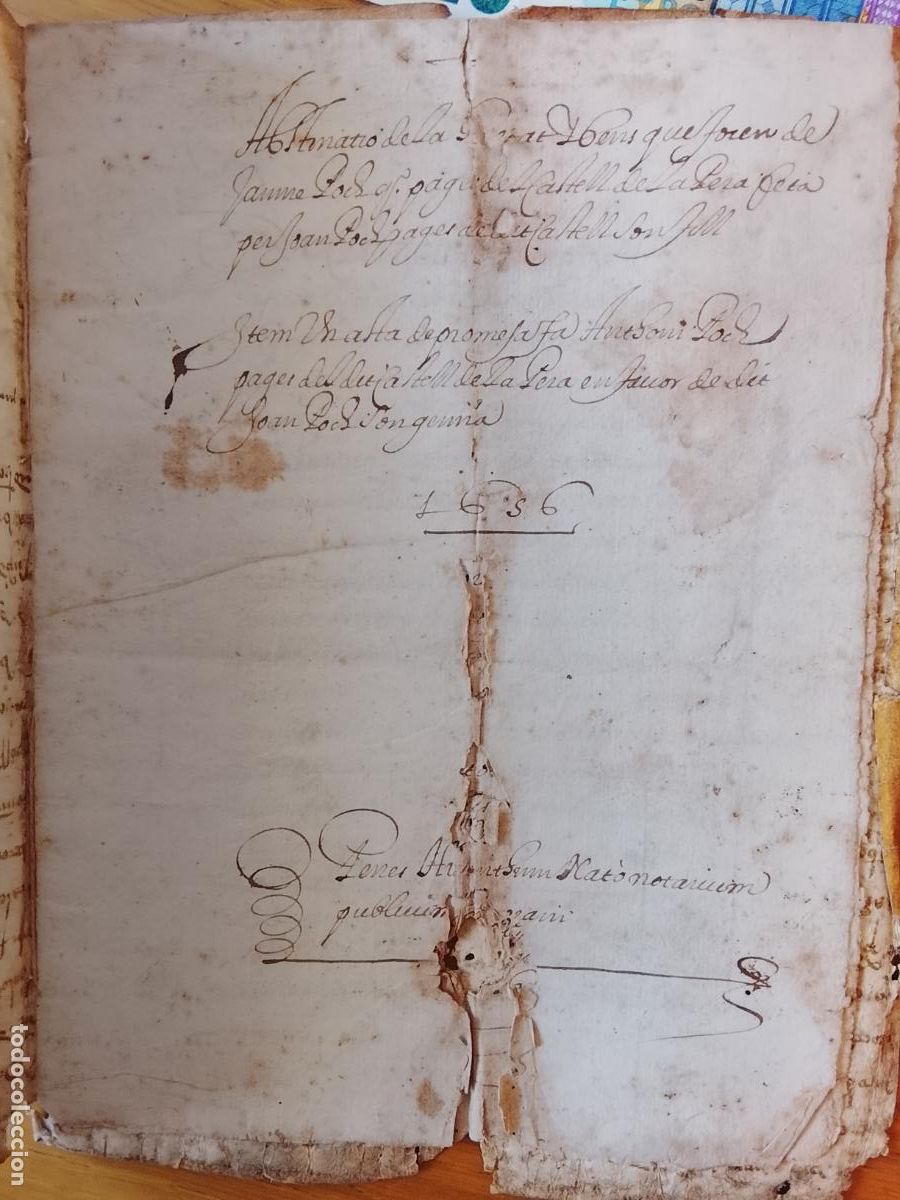 Abstinatio de la Heretat y bens que foren de
Jaume Poch q.º pages del Castell de la Pera feta
per Joan Poch pages de dit Castell son fill
Item Un acta de promesa fa Anthoni Poch
pages del dit Castell de la Pera en favor de dit
Joan Poch son germa
1656
Penes notarium
publicum
todocoleccion